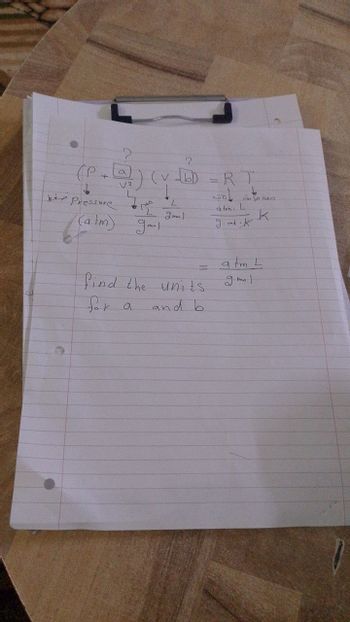 ? ?
(P + a/V²) (V - b) = R T
Pressure L L/gmol atm.L/g.mol.K K
(atm) gmol
= atm L/gmol
find the units
for a and b